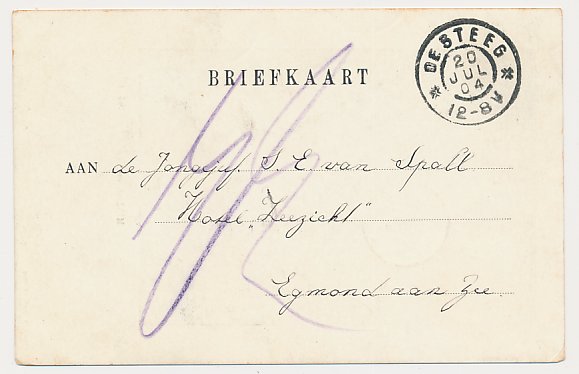 DE STEEG
20
JUL
04
12-8V
BRIEFKAART
AAN de Jongejuf. S. E. van Spall
Hotel „Zeezicht"
Egmond aan Zee.